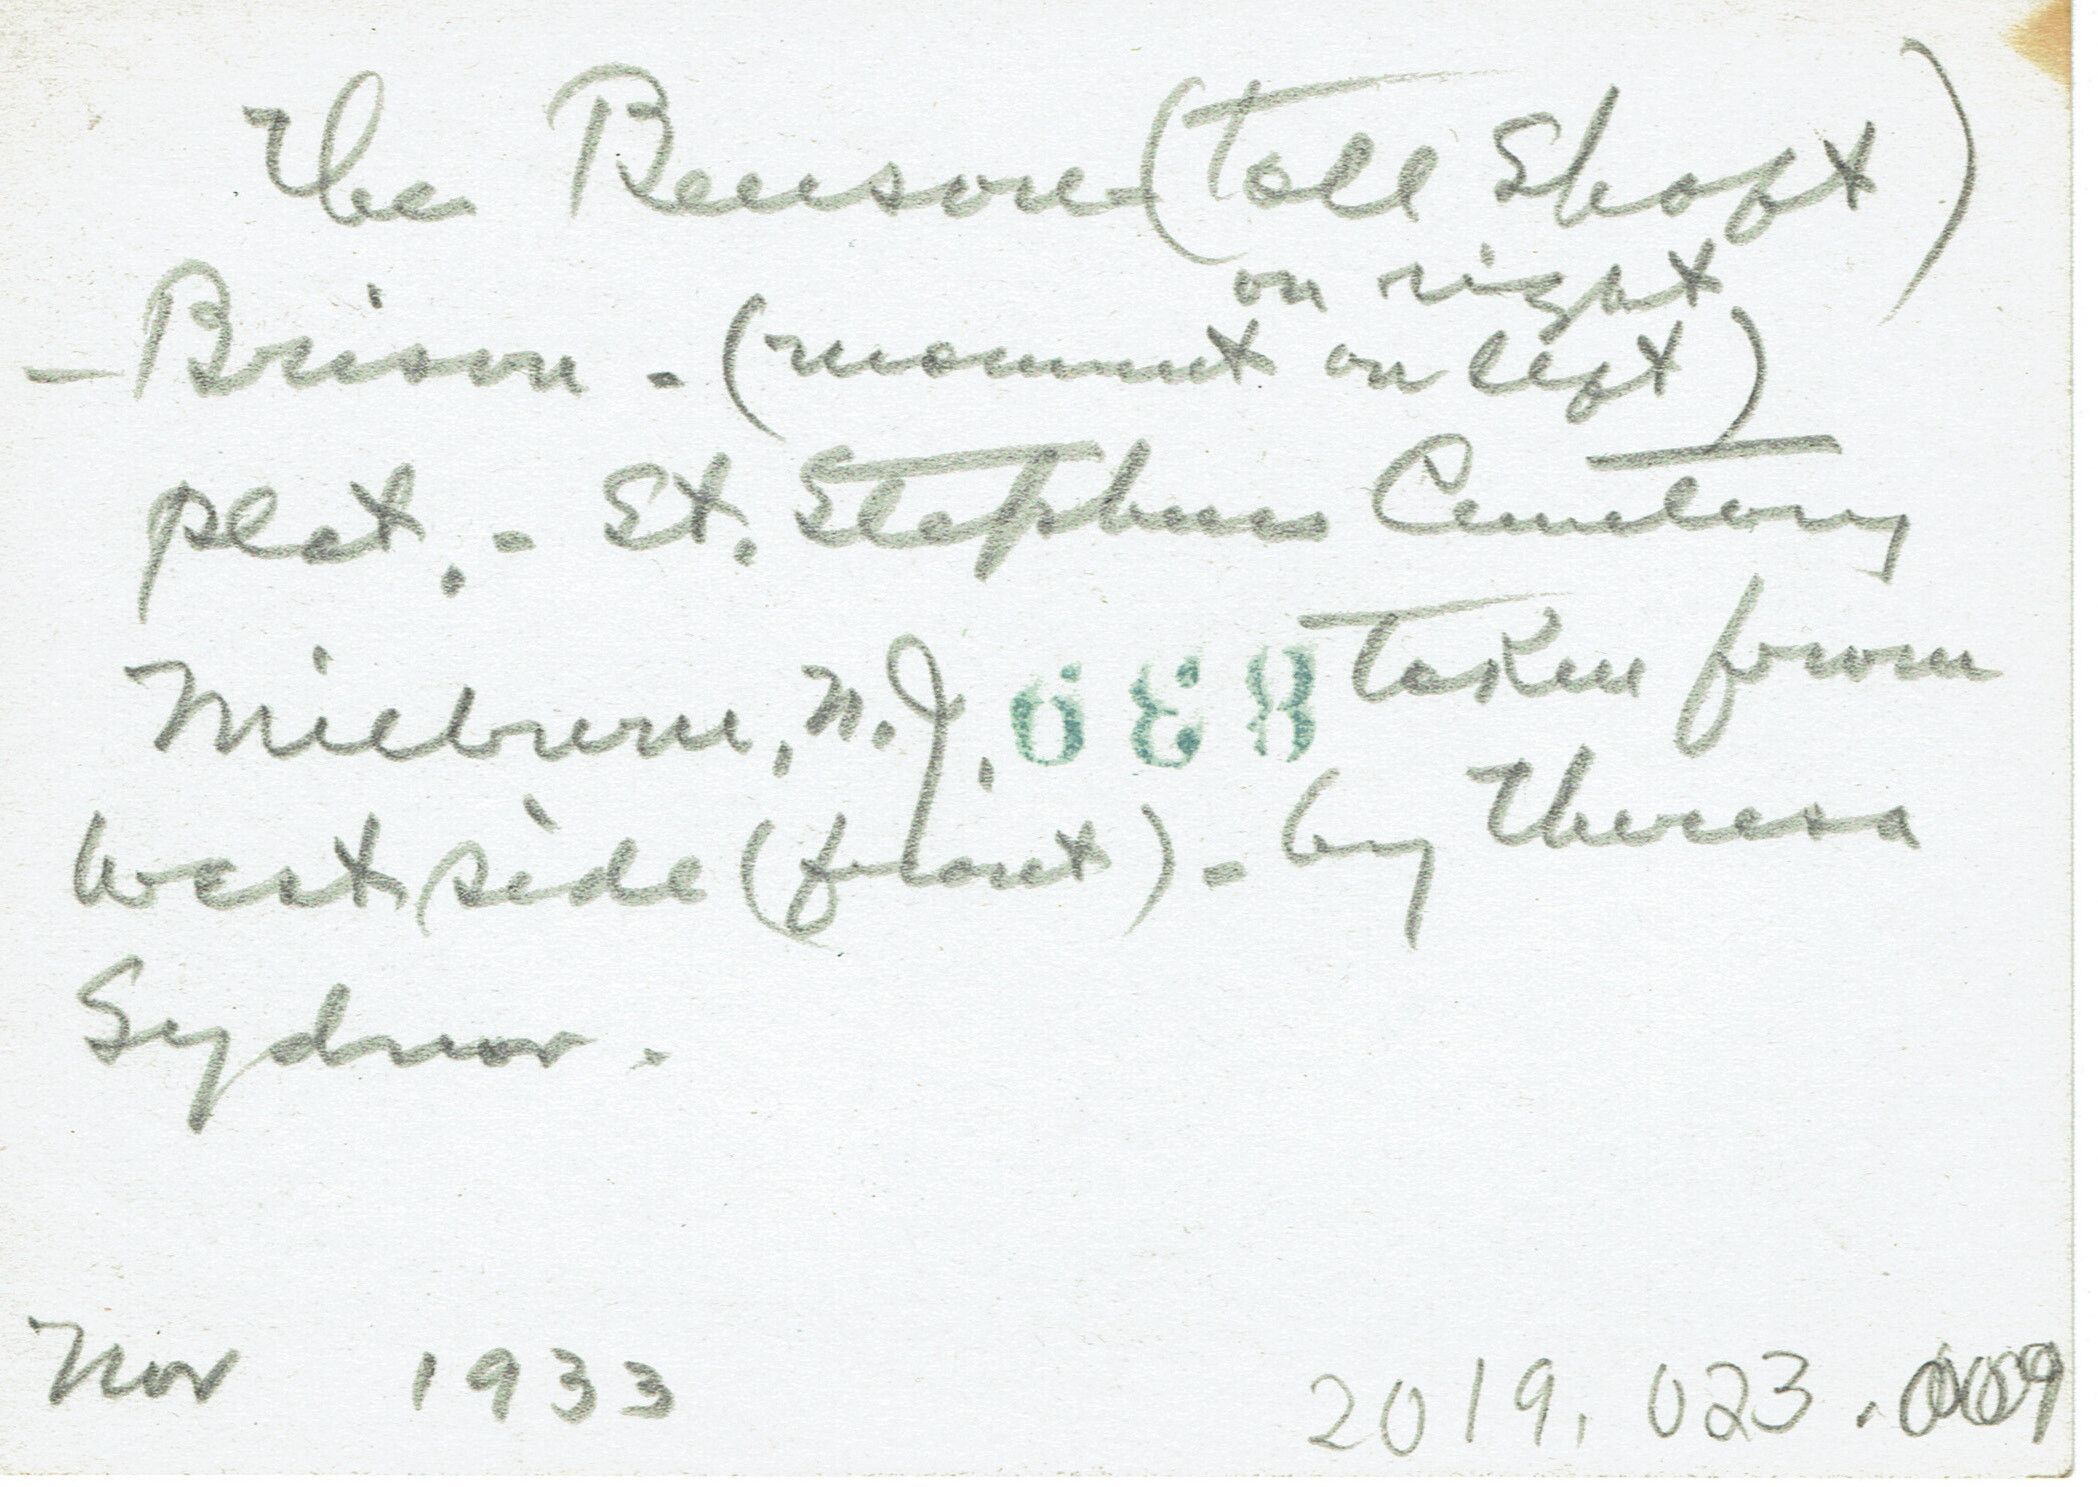 The Benson (Tall Shaft)
on right
- Brison - (monument on left)
plat. - St. Stephens Cemetery
Milburn, N.J. 688 Taken from
West side (front) - by Theresa
Sydnor.
Nov 1933 2019.023.009